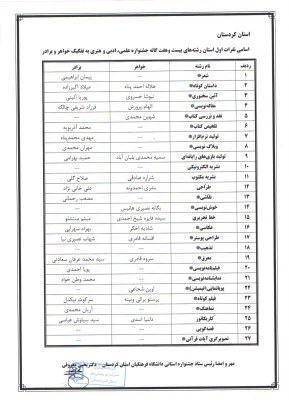 استان کردستان
اسامی نفرات اول استان رشته‌های بیست وهفت گانه جشنواره علمی، ادبی و هنری به تفکیک خواهر و برادر
ردیف نام رشته خواهر برادر
۱ شعر* --- پیمان ابراهیمی
۲ داستان کوتاه* هلاله احمد پناه میلاد اکبرزاده
۳ آئین سخنوری* نیوشا خسروی پوریا آئینی
۴ مقاله‌نویسی* الهام پرورش فرزاد شریفی چالگه
۵ نقد و بررسی کتاب* شهین محمدی ---
۶ تلخیص کتاب* --- محمد آذرپوید
۷ تولید نرم‌افزار* --- مهدی محمدپناه
۸ وبلاگ نویسی* --- مهران محمدی
۹ تولید بازی‌های رایانه‌ای سمیه محمدی بلبان آباد حمید بهرامی
۱۰ نشریه الکترونیکی --- ---
۱۱ نشریه مکتوب شراره صادقی صلاح گلی
۱۲ طراحی* بشری احمدوند علی خانی نژاد
۱۳ نقاشی* --- مصعب رحمانی
۱۴ خوش‌نویسی* یگانه نصیری ---
۱۵ خط تحریری سیده فائزه شیخ احمدی میثم
۱۶ عکاسی* شادیه اخگر بهزاد سهرابی
۱۷ طراحی پوستر* افسانه قادری شهاب نصیری نیا
۱۸ تذهیب* --- ---
۱۹ معرق* سروه قادری سید محمد عرفان سعادتی
۲۰ فیلم‌نامه‌نویسی* --- پویا احمدی
۲۱ نمایشنامه‌نویسی* --- محمد وطن خواه
۲۲ پویانمایی(انیمیشن)* اوین شجاعی ---
۲۳ فیلم کوتاه* پرستو برائی وینینه سرکوت نیکدل
۲۴ نماهنگ* --- آریان محمدی
۲۵ کاریکاتور دلنیا اسدی سید سیاوش عباسی
۲۶ قصه‌گویی --- ---
۲۷ تصویرگری آیات قرآنی* --- ---
مهر و امضا رئیس ستاد جشنواره استانی دانشگاه فرهنگیان استان کردستان – دکتر